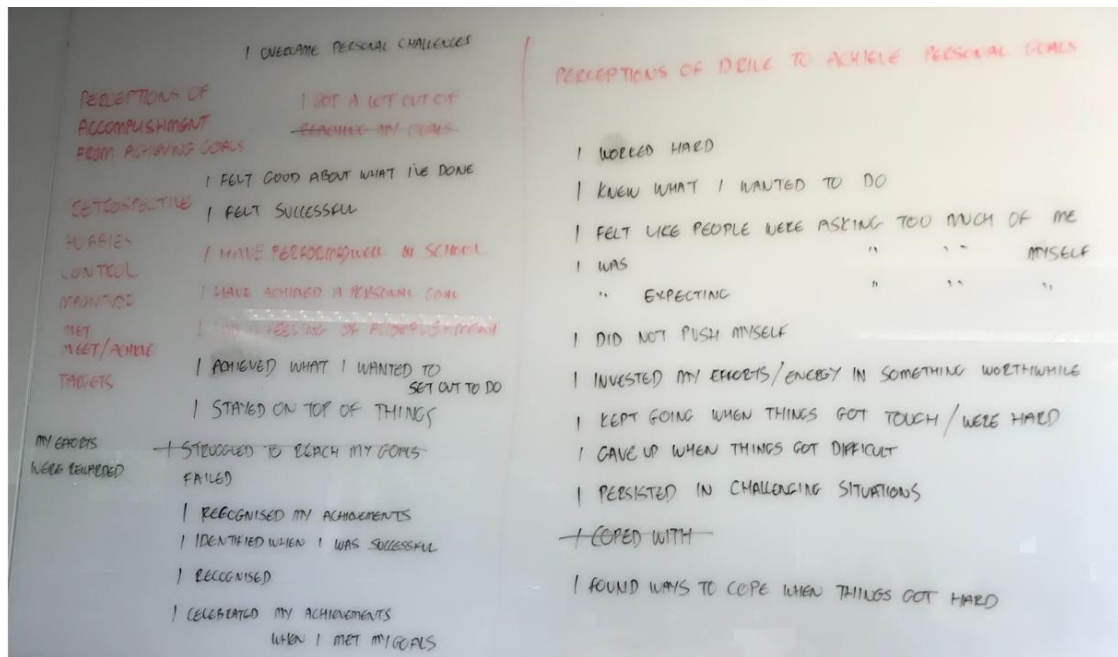 I OVERCAME PERSONAL CHALLENGES
PERCEPTIONS OF
ACCOMPLISHMENT
FROM ACHIEVING GOALS
I GOT A LOT OUT OF
REACHING MY GOALS
I FELT GOOD ABOUT WHAT I'VE DONE
RETROSPECTIVE
I FELT SUCCESSFUL
HOBBIES
I HAVE PERFORMED WELL IN SCHOOL
CONTROL
I HAVE ACHIEVED A PERSONAL GOAL
MET
FEELING OF ACCOMPLISHMENT
MEET/ACHIEVE
TARGETS
I ACHIEVED WHAT I WANTED TO
SET OUT TO DO
I STAYED ON TOP OF THINGS
MY EFFORTS
WERE REWARDED
I STRUGGLED TO REACH MY GOALS
FAILED
I RECOGNISED MY ACHIEVEMENTS
I IDENTIFIED WHEN I WAS SUCCESSFUL
I RECOGNISED
I CELEBRATED MY ACHIEVEMENTS
WHEN I MET MY GOALS
PERCEPTIONS OF DRIVE TO ACHIEVE PERSONAL GOALS
I WORKED HARD
I KNEW WHAT I WANTED TO DO
I FELT LIKE PEOPLE WERE ASKING TOO MUCH OF ME
I WAS " " " MYSELF
" EXPECTING " " " "
I DID NOT PUSH MYSELF
I INVESTED MY EFFORTS/ENERGY IN SOMETHING WORTHWHILE
I KEPT GOING WHEN THINGS GOT TOUGH/WERE HARD
I GAVE UP WHEN THINGS GOT DIFFICULT
I PERSISTED IN CHALLENGING SITUATIONS
I COPED WITH
I FOUND WAYS TO COPE WHEN THINGS GOT HARD